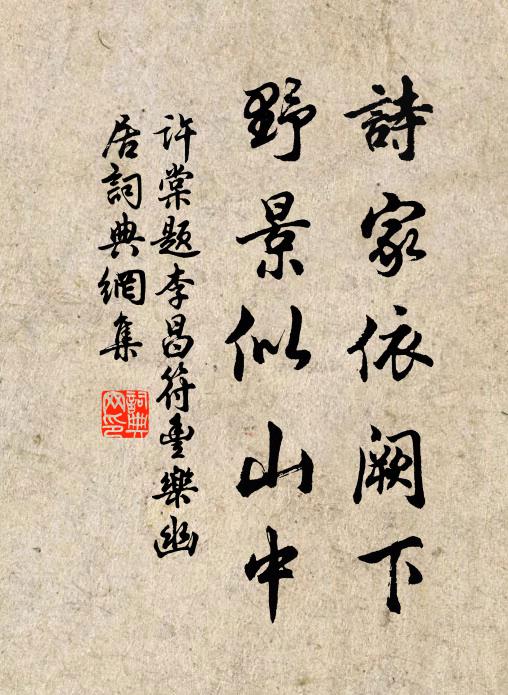 詩家依闕下
野景似山中
许棠题李昌符豐樂幽
居詞典網集
詞典
网印